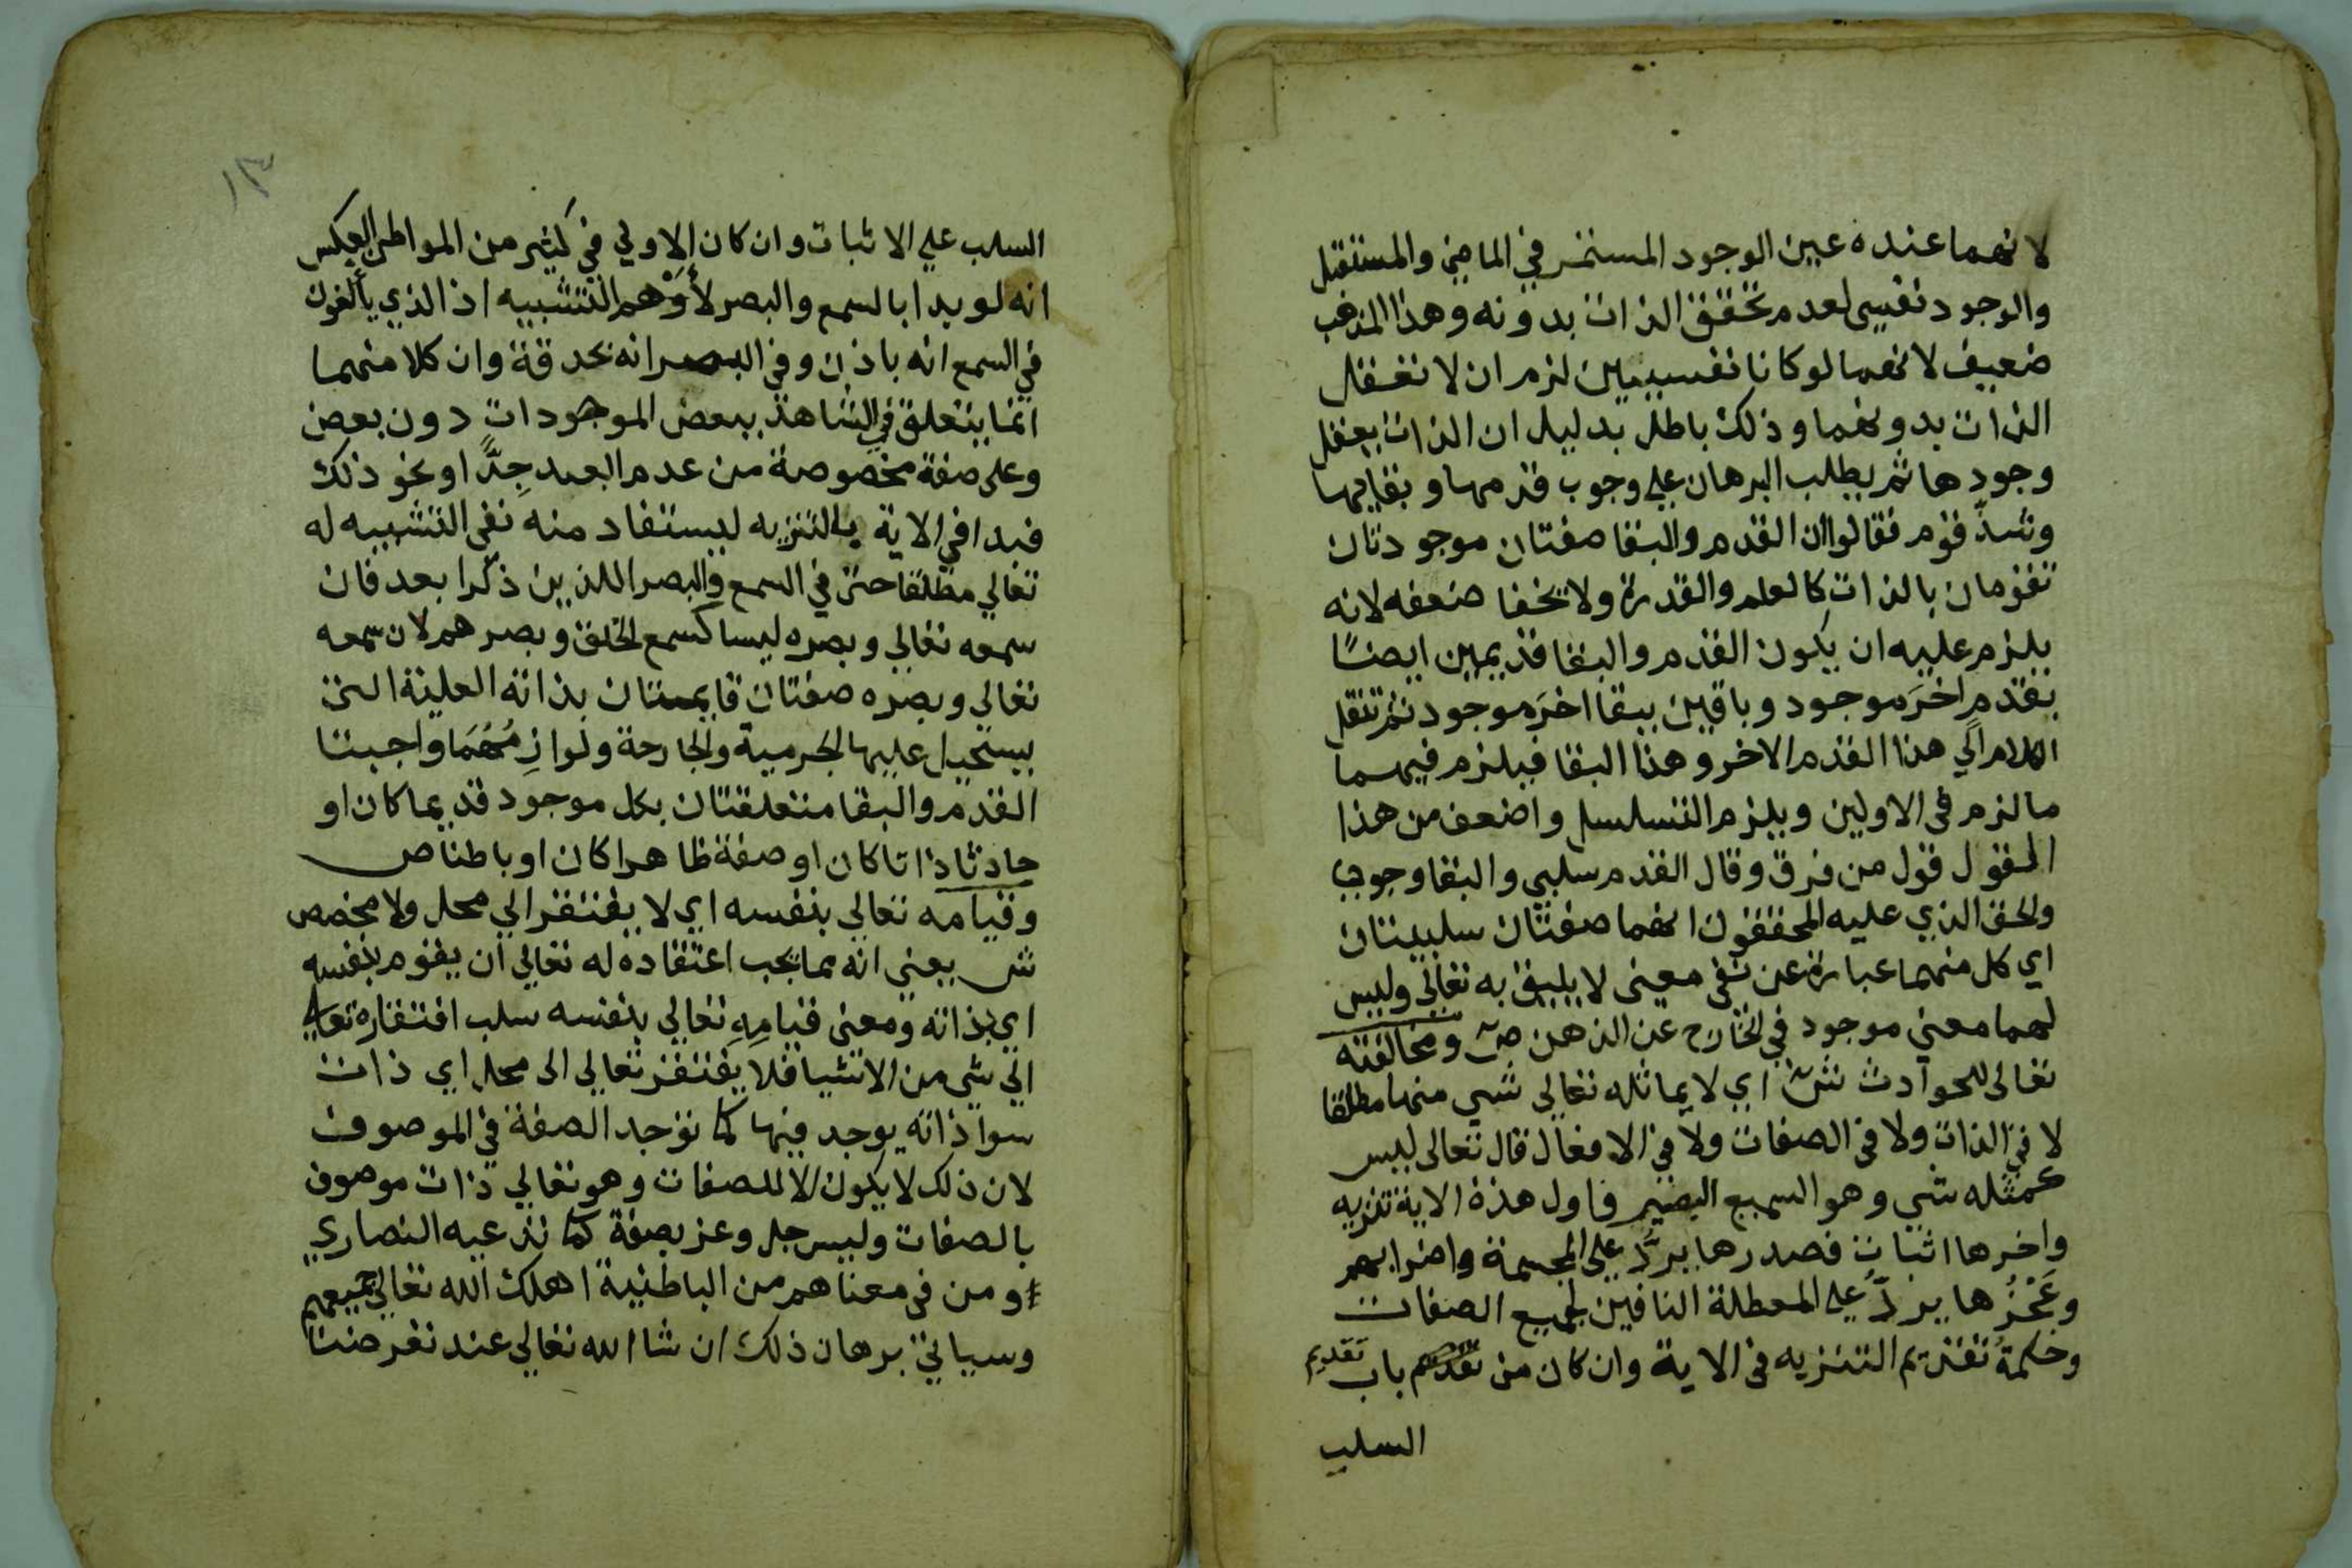 لانهما عنده عين الوجود المستمر في الماضي والمستقبل
والوجود نفسي لعدم تحقق الذات بدونه وهذا المذهب
ضعيف لانهما لو كانا نفسيين لزم ان لا تعقل
الذات بدونهما وذلك باطل بدليل ان الذات يعقل
وجودها ثم يطلب البرهان علي وجوب قدمها وبقايها
وشذّ قوم فقالوا ان القدم والبقا صفتان موجودتان
تقومان بالذات كالعلم والقدرة ولا يخفا ضعفه لانه
يلزم عليه ان يكون القدم والبقا قديمين ايضًا
بقدمٍ اخرَ موجود وباقيين ببقا اخرَ موجود ثم تنقل
الكلام الي هذا القدم الاخر وهذا البقا فيلزم فيهما
ما لزم في الاولين ويلزم التسلسل واضعف من هذا
القول قول من فرق وقال القدم سلبي والبقا وجودي
والحق الذي عليه المحققون انهما صفتان سلبيتان
اي كل منهما عبارة عن نفي معنى لا يليق به تعالي وليس
لهما معني موجود في الخارج عن الذهن ص ومخالفته
تعالى للحوادث ش اي لا يماثله تعالى شي منها مطلقا
لا في الذات ولا في الصفات ولا في الافعال قال تعالى ليس
كمثله شي وهو السميع البصير فاول هذه الاية تنزيه
واخرها اثبات فصدرها يردّ على المجسمة واضرابهم
وعَجْزُها يردّ علي المعطلة النافين لجميع الصفات
وحكمةُ تقديم التنزيه في الاية وان كان من باب تقديم
السلب
١٣
السلب علي الاثبات وان كان الاولي في كثير من المواطن العكس
انه لو بدا بالسمع والبصر لأَوْهم التشبيه اذ الذي يألفون
في السمع انه باذن وفي البصر انه بحدقة وان كلا منهما
انما يتعلق في الشاهد ببعض الموجودات دون بعض
وعلى صفة مخصوصة من عدم البعد جِدًّا او نحو ذلك
فبدا في الاية بالتنزيه ليستفاد منه نفي التشبيه له
تعالي مطلقا حتى في السمع والبصر اللذين ذكرا بعد فان
سمعه تعالي وبصره ليسا كسمع الخلق وبصرهم لان سمعه
تعالى وبصره صفتان قايمتان بذاته العلية التى
يستحيل عليها الجرمية والجارحة ولوازِمُهُمَا واجبتا
القدم والبقا متعلقتان بكل موجود قديما كان او
حادثا ذاتا كان او صفة ظاهرا كان او باطنا ص
وقيامه تعالي بنفسه اي لا يفتقر الي محل ولا مخصص
ش يعني انه مما يجب اعتقاده له تعالي ان يقوم بنفسه
اي بذاته ومعنى قيامِهِ تعالي بنفسه سلب افتقاره تعالى
الي شي من الاشيا فلا يفتقر تعالي الى محل اي ذات
سوا ذاته يوجد فيها كما توجد الصفة في الموصوف
لان ذلك لا يكون الا للصفات وهو تعالي ذات موصوف
بالصفات وليس جل وعز بصفة كما تدعيه النصاري
ومن في معناهم من الباطنية اهلك الله تعالى جميعهم
وسياتي برهان ذلك ان شا الله تعالي عند تعرضنا